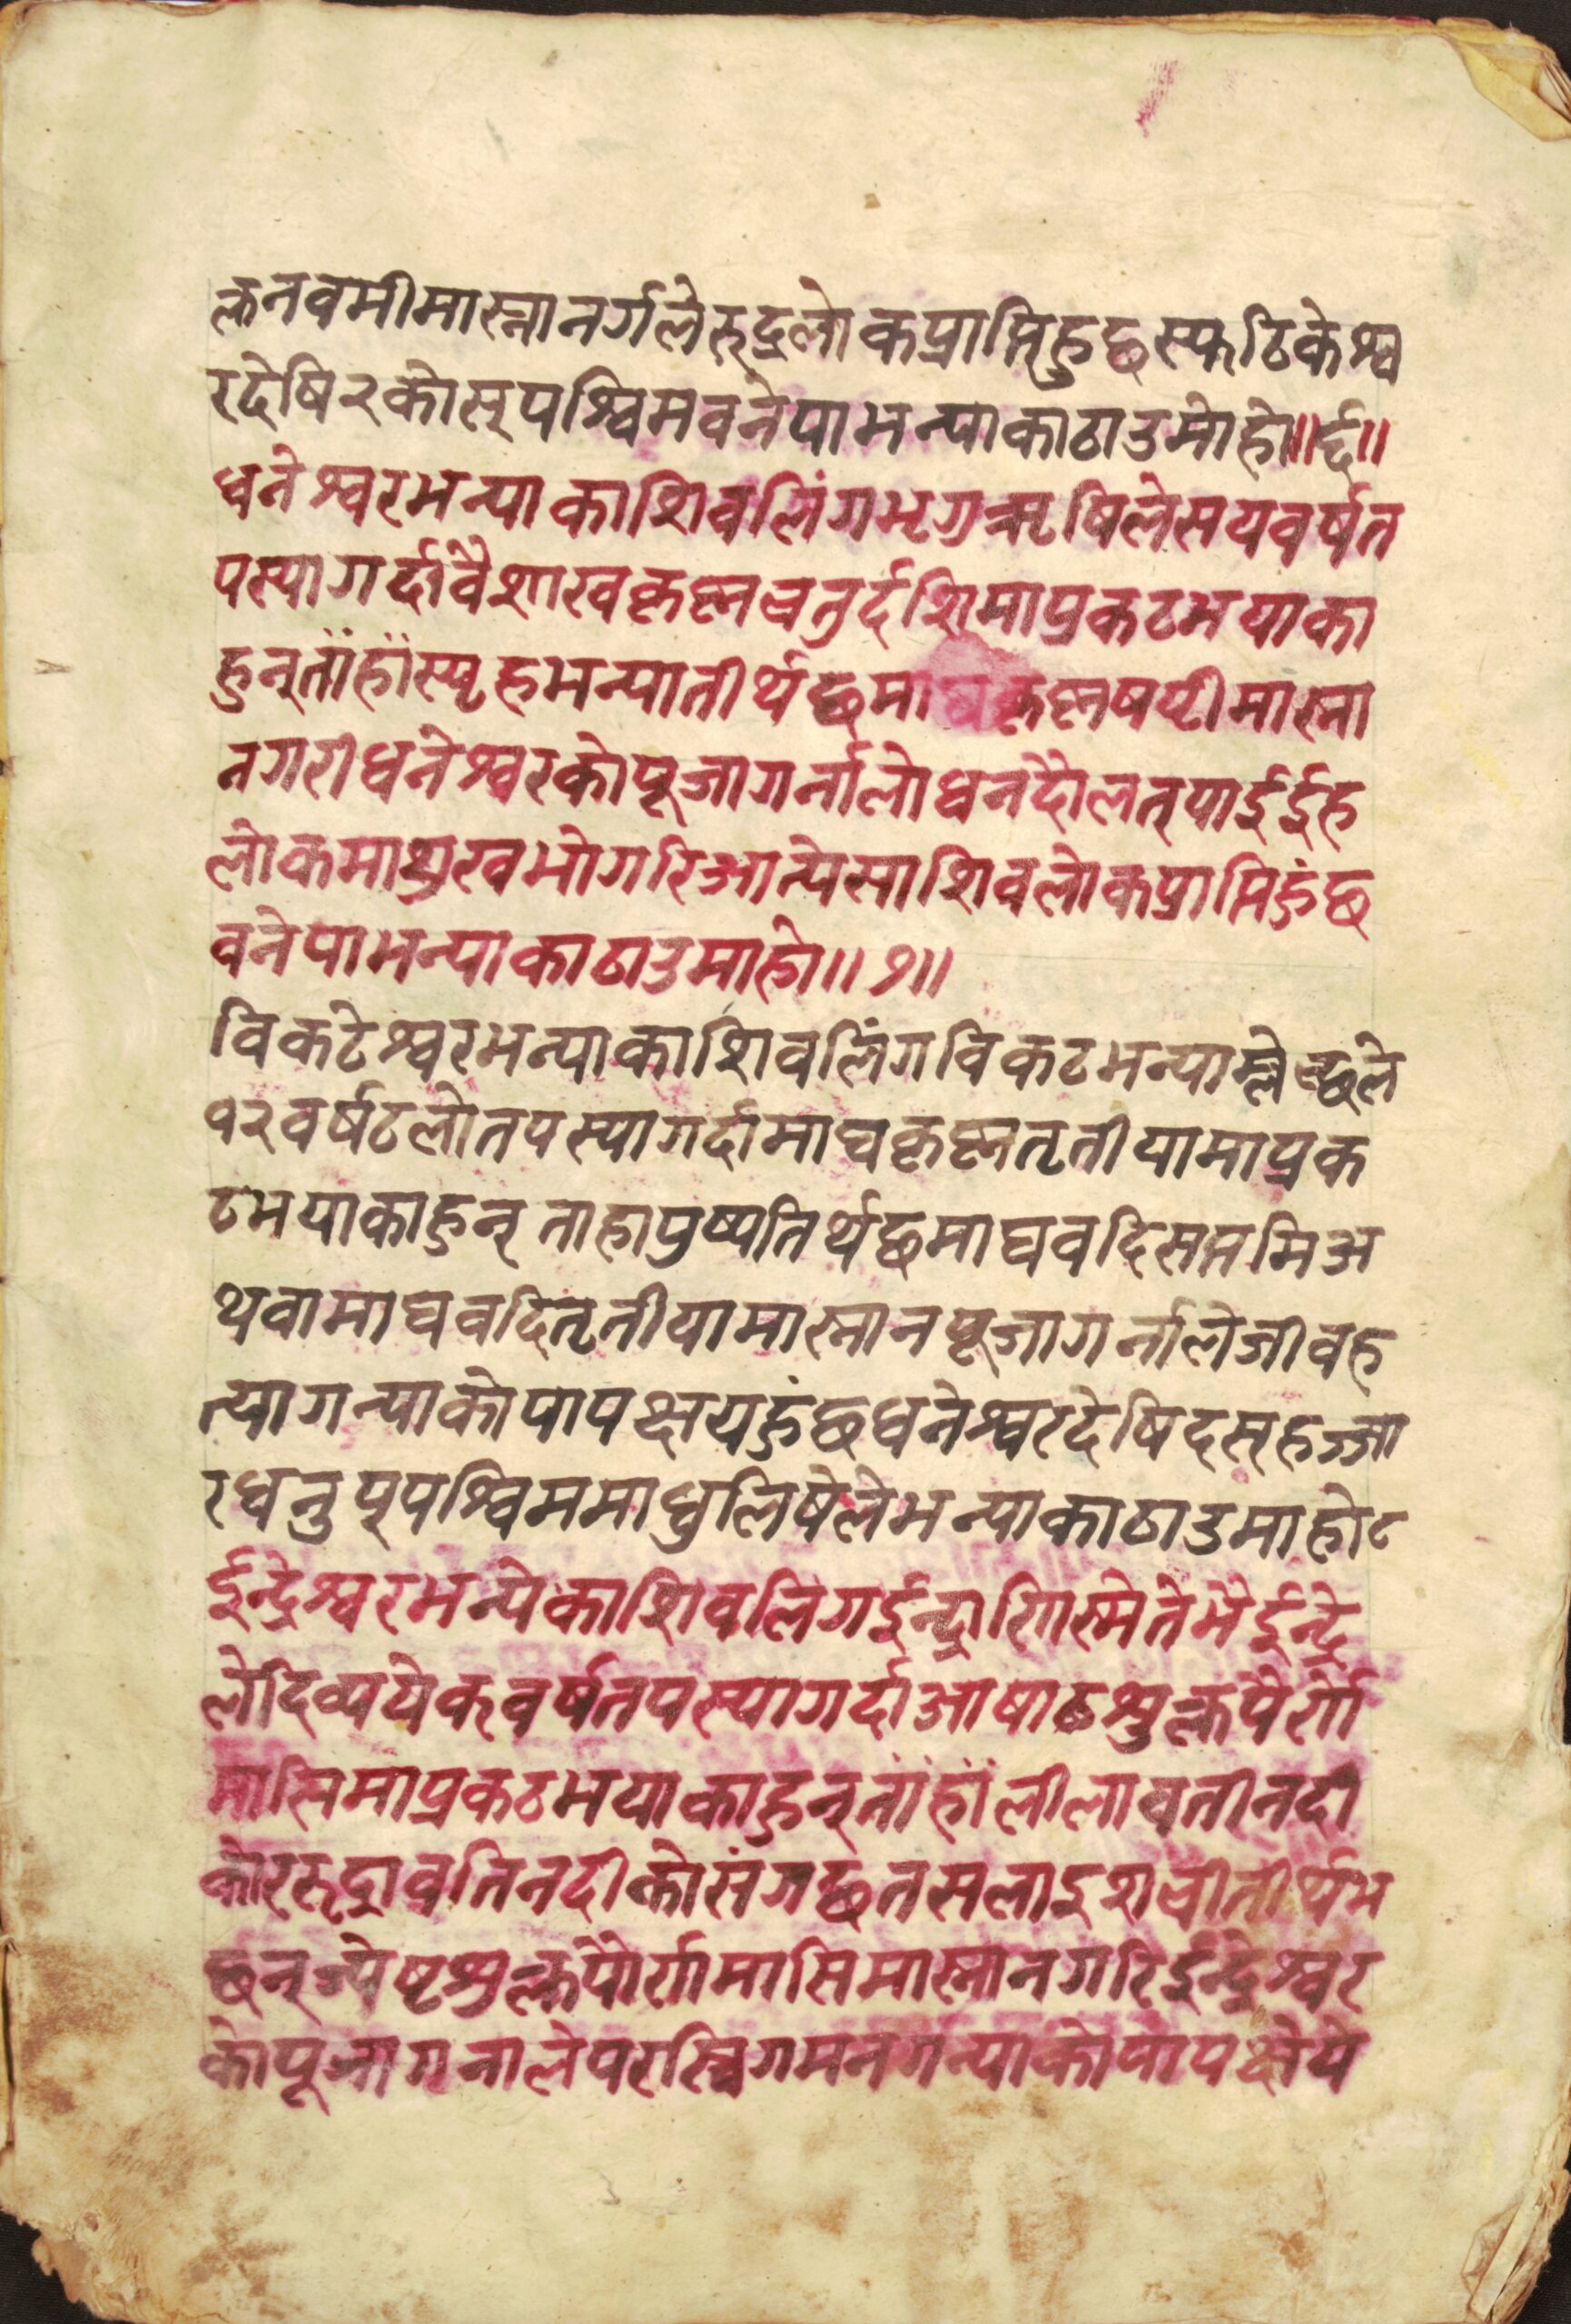 क्लनवमीमास्नानर्गलेरुद्रलोकप्राप्तिहुछस्फटिकेश्व
रदेषि२कोस्पश्चिमवनेपाभन्याकाठाउमोहो॥६॥
धनेश्वरभन्याकाशिवलिंगभृगुऋषिलेसयवर्षत
पस्यागर्दावैशाखकृष्णचतुर्दशिमाप्रकटभयाका
हुन्ताँहाँस्पृहभन्यातीर्थछमाघकृष्णषष्टीमास्ना
नगरीधनेश्वरकोपूजागर्नालोधनदौलत्पाईईह
लोकमाशुखभोगरिआत्पेसाशिवलोकप्राप्तिहुंछ
वनेपाभन्याकाठाउमाहो॥७॥
विकटेश्वरभन्याकाशिवलिंगविकटभन्याम्लेच्छले
१२वर्षटलोतपस्यागर्दामाघकृष्णतृतीयामाप्रक
टभयाकाहुन् ताहापुष्पतिर्थछमाघवदिसप्तमिअ
थवामाघवदितृतीयामास्नानपूजागर्नालेजीवह
त्यागन्याकोपापक्षयहुंछधनेश्वरदेषिदस्हज्जा
रधनुप्पश्चिममाधुलिषेलेभन्याकाठाउमाहो८
ईन्द्रेश्वरभन्येकाशिवलिगईन्द्राणिस्मेतभैईन्द्रे
लेदिव्ययेक्वर्षतपस्यागर्दाआषाठशुक्लपैर्णौ
मासिमाप्रकठभयाकाहुन्ताँहाँलीलावतीनदी
कोर्रूद्रावतिनदीकोसंगछतसलाइशचीतीर्थभ
छन्ज्येष्टशुक्लपौर्णमासिमास्नानगरिईन्द्रेश्वर
कोपूजागनालेपरस्त्रिगमनगन्याकोपापक्षेये